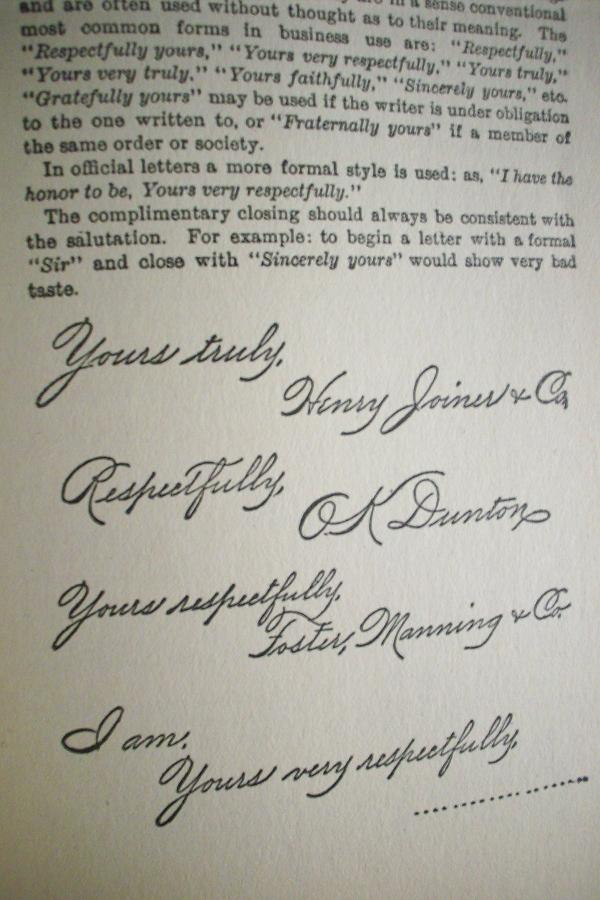 and are often used without thought as to their meaning. The
in a sense conventional
most common forms in business use are: "Respectfully,"
"Respectfully yours," "Yours very respectfully," "Yours truly,"
"Yours very truly." "Yours faithfully," "Sincerely yours," etc.
"Gratefully yours" may be used if the writer is under obligation
to the one written to, or "Fraternally yours" if a member of
the same order or society.
In official letters a more formal style is used: as, "I have the
honor to be, Yours very respectfully."
The complimentary closing should always be consistent with
the salutation. For example: to begin a letter with a formal
"Sir" and close with "Sincerely yours" would show very bad
taste.
Yours truly,
Henry Joiner & Co.
Respectfully,
O K Dunton
Yours respectfully,
Foster, Manning & Co.
I am,
Yours very respectfully,